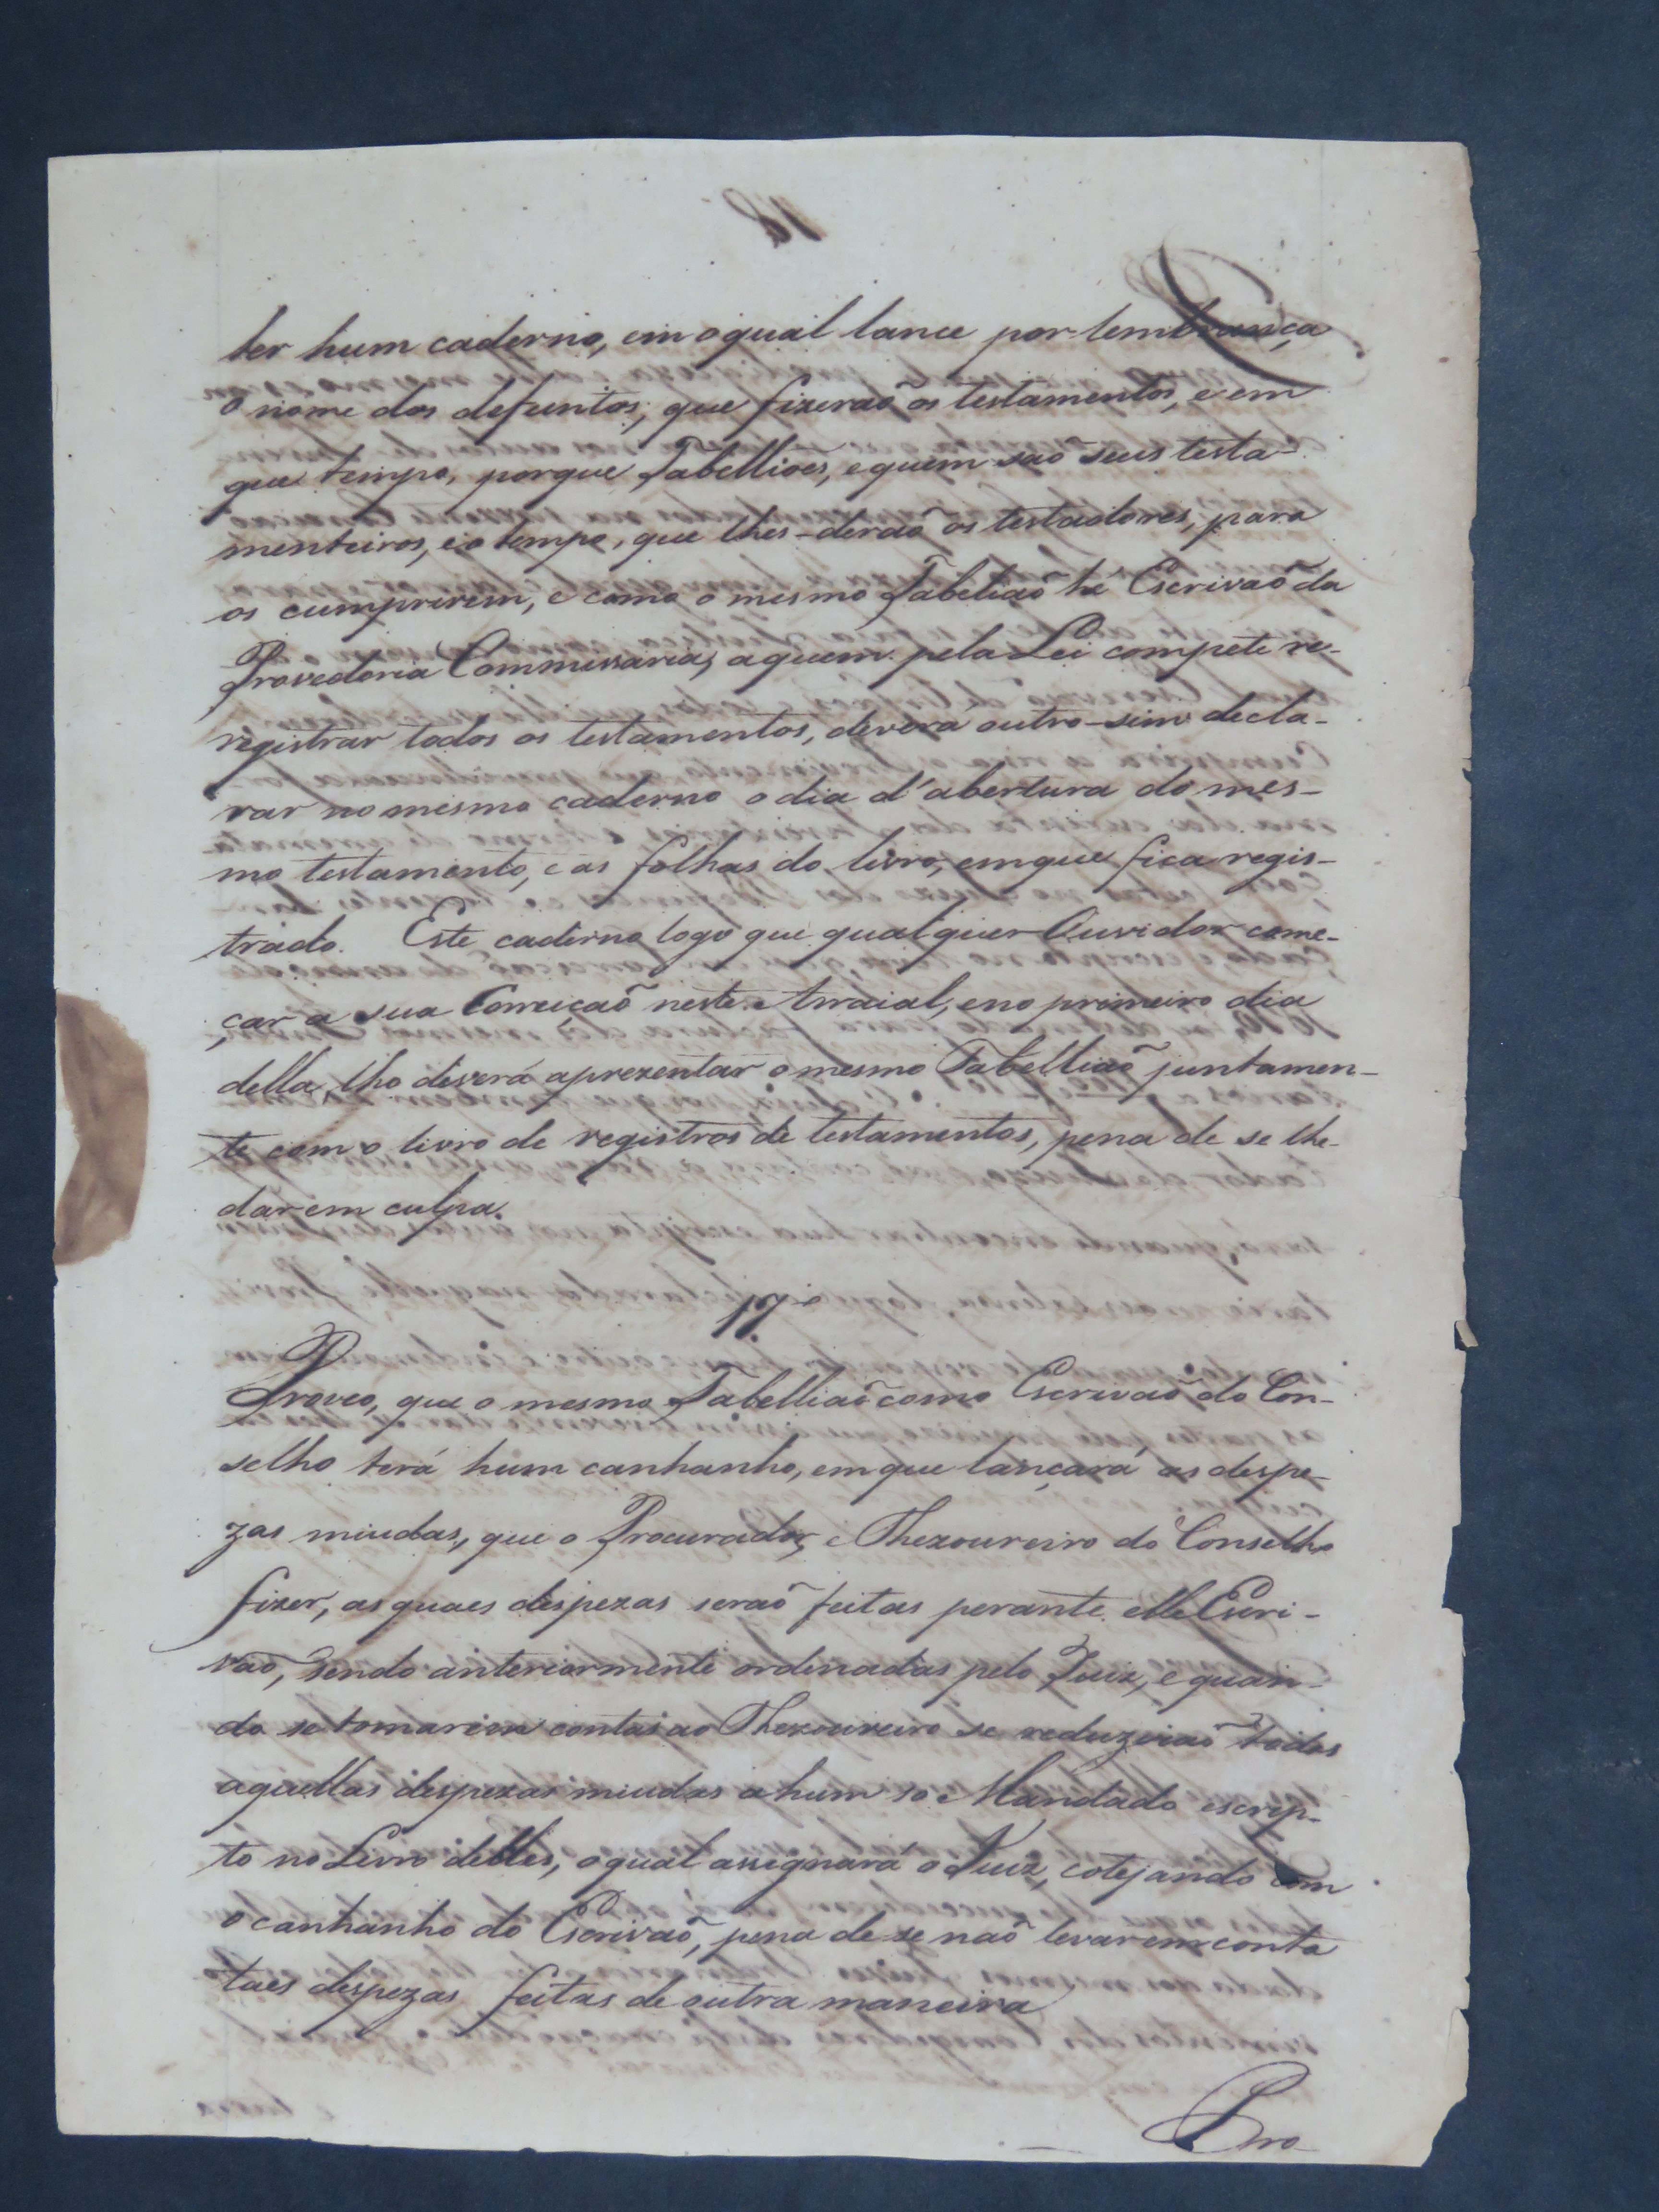 ter hum caderno, em o qual lance por lembrança
o nome dos defuntos, que fizeraõ os testamentos, e em
que tempo, porque Tabellioes, e quem saõ seus testa-
menteiros, e o tempo, que lhes-deraõ os testadores, para
os cumprirem, e como o mesmo Tabeliaõ hé Escrivaõ da
Provedoria Commissaria, a quem pela Lei compete re-
registrar todos os testamentos, devera outro-sim decla-
rar no mesmo caderno o dia d'abertura do mes-
mo testamento, e as folhas do livro, em que fica regis-
trado. Este caderno logo que qualquer Ouvidor come-
çar a sua Correiçaõ neste Arraial, e no primeiro dia
della, lho deverá aprezentar o mesmo Tabelliaõ juntamen-
te com o livro de registros de testamentos, pena de se lhe-
dar em culpa.
17º
Proveo, que o mesmo Tabelliaõ como Escrivaõ do Con-
selho terá hum canhanho, em que lançará as despe-
zas miudas, que o Procurador, e Thezoureiro do Conselho
fizer, as quaes despezas seraõ feitas perante elle Escri-
vaõ, sendo anteriormente ordenadas pelo Juiz, e quan-
do se tomarem contas ao Thezoureiro se reduziraõ todas
aquellas despezas miudas a hum so Mandado escrip-
to no Livro delles, o qual assignará o Juiz, cotejando com
o canhanho do Escrivaõ, pena de se naõ levar em conta
taes despezas feitas de outra maneira
Pro-